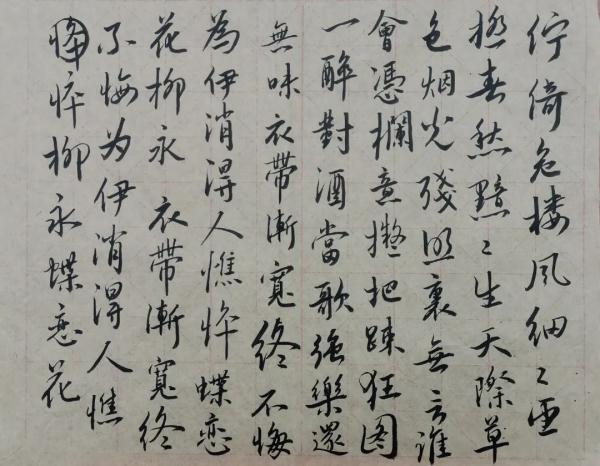 佇倚危楼风细〻望
極春愁黯〻生天際草
色烟光殘照裏無言誰
會憑欄意擬把踈狂图
一醉對酒當歌強樂還
無味衣帶漸寬終不悔
為伊消得人憔悴 蝶恋
花柳永 衣帶漸寬終
不悔为伊消得人憔
悴柳永蝶恋花